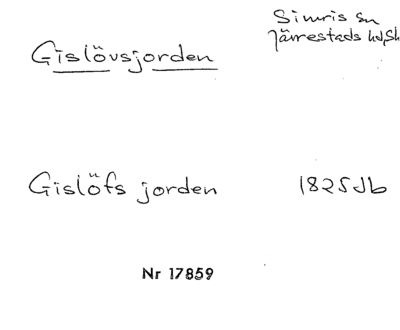 Simris sn
Gislövsjorden Järrestads hd, Sk
Gislöfs jorden 1825 Jb
Nr 17859